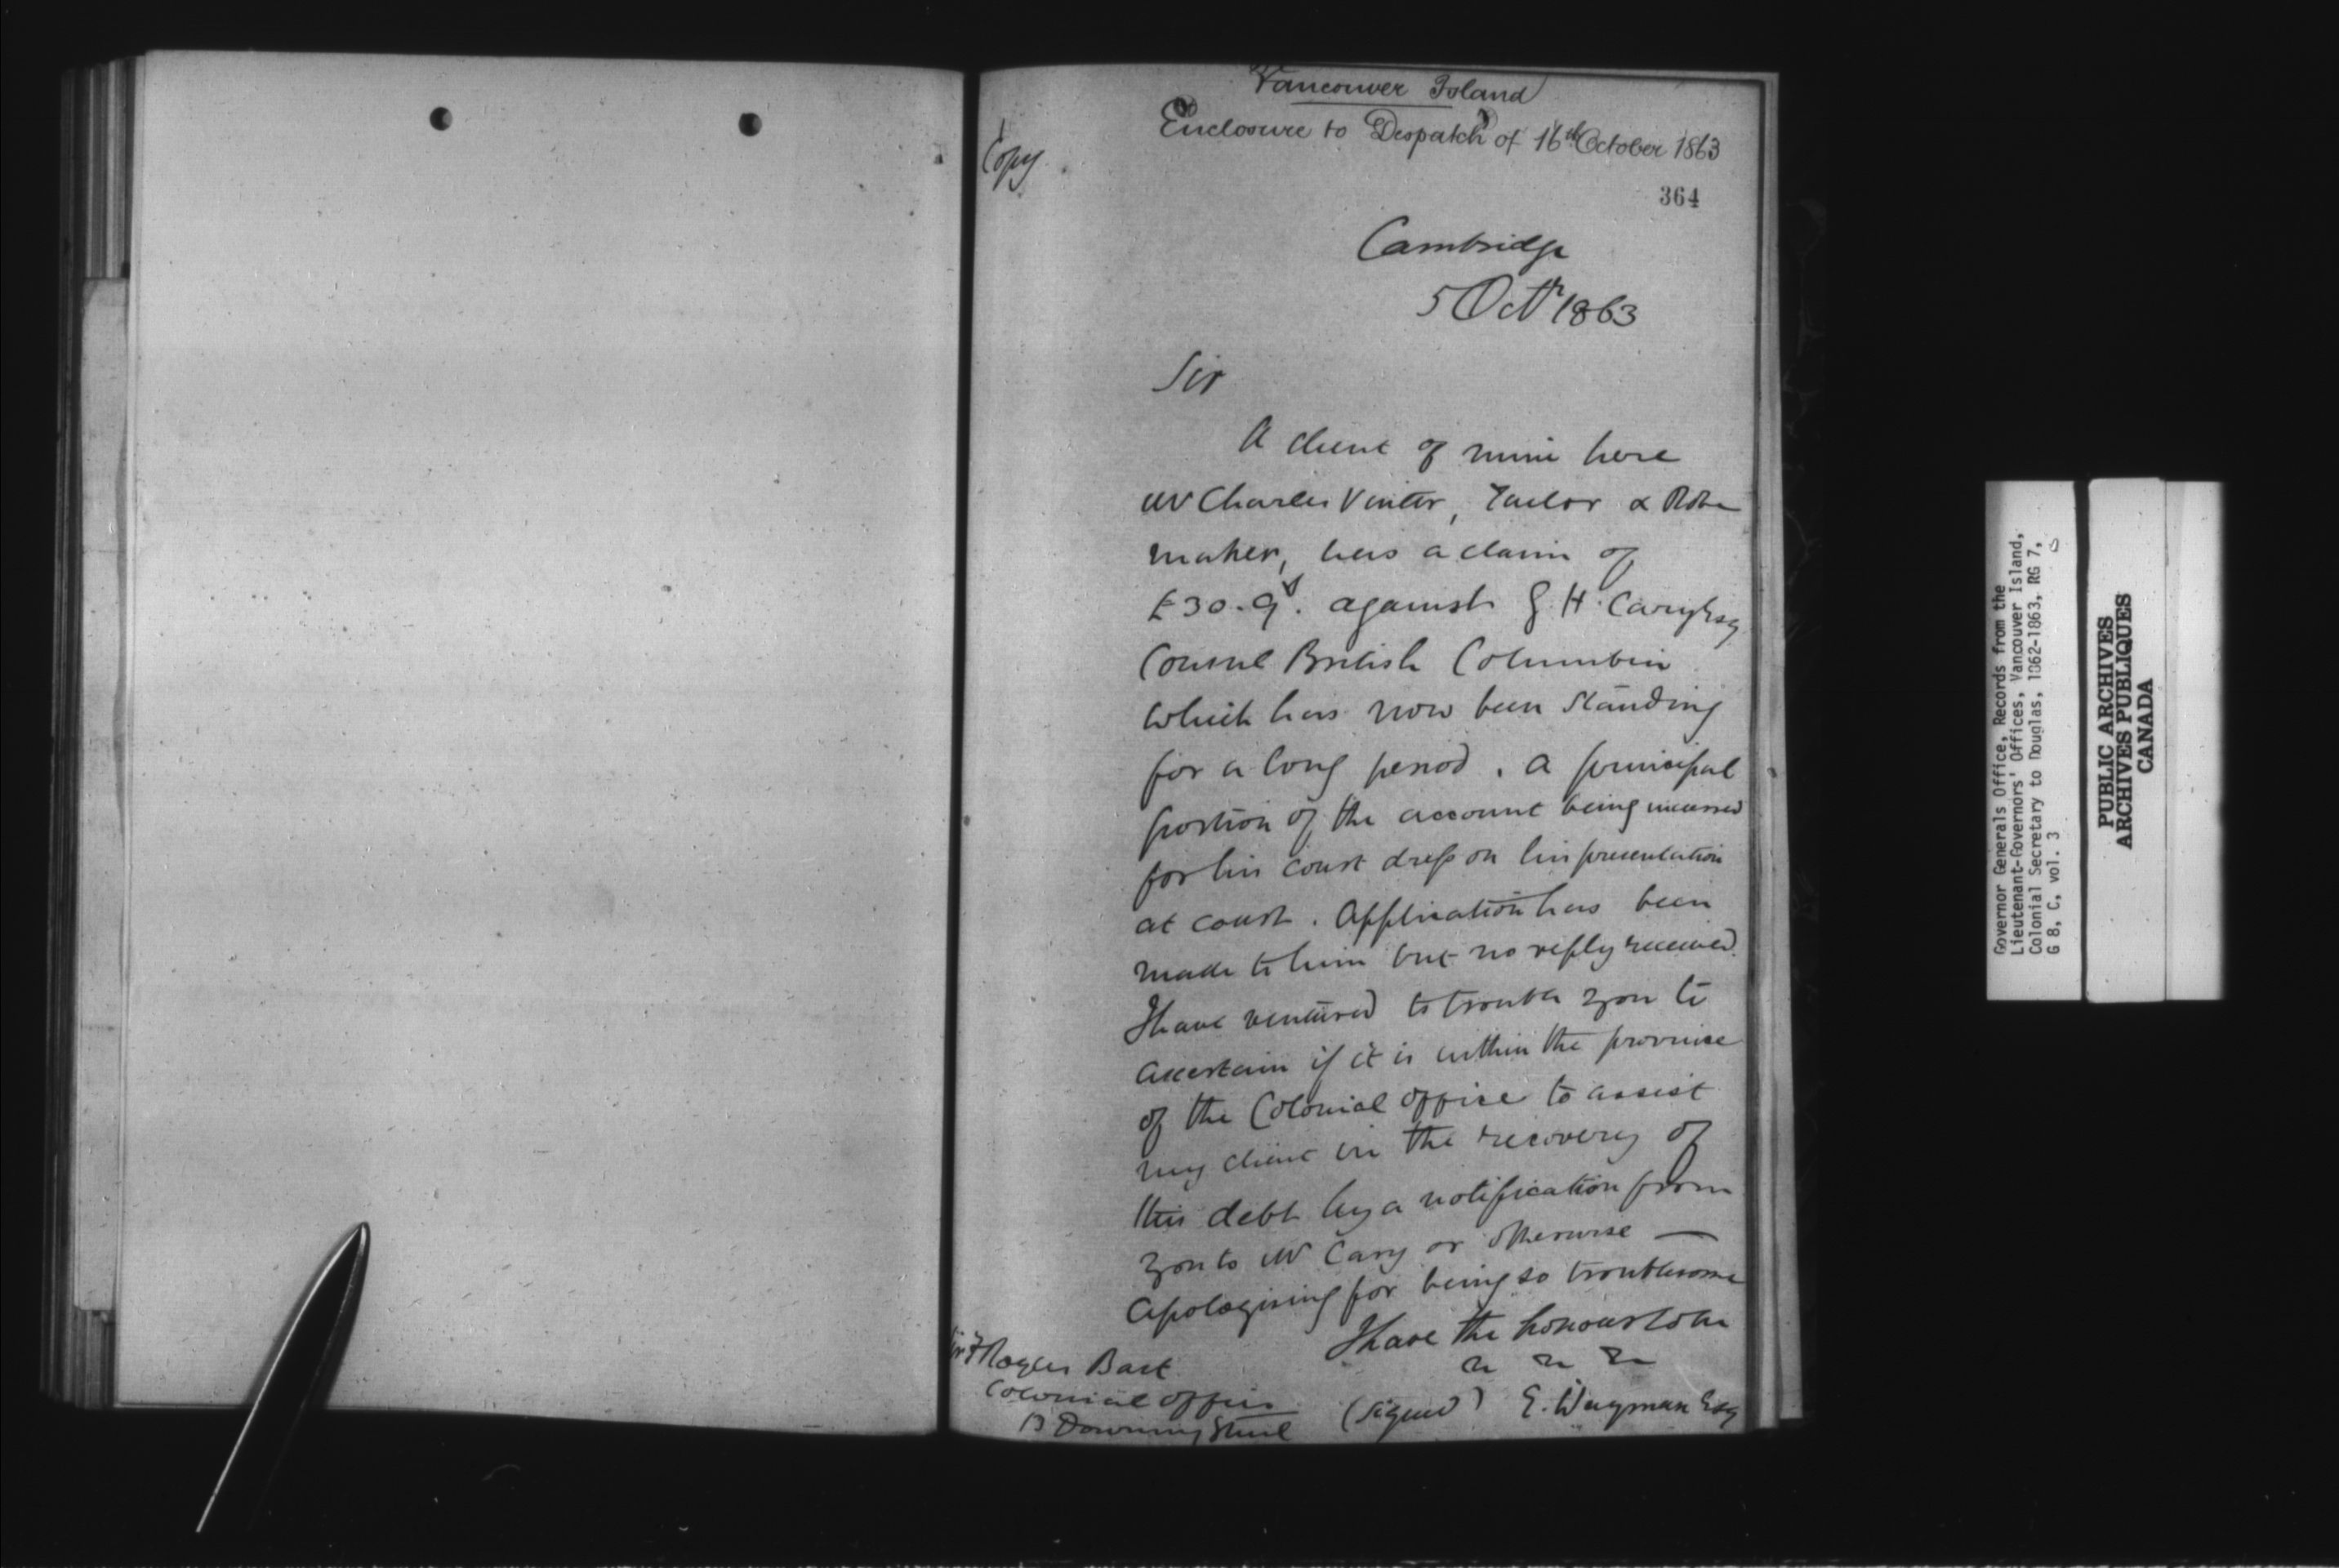 Vancouver Island
Enclosure to Despatch of 16th October 1863
Copy
364
Cambridge
5 Octr 1863
Sir
A client of mine here
Mr Charles Vinter, Tailor & Robe
maker, has a claim of
£30.9s. against G. H. Cary Esq
Counsel British Columbia
which has now been standing
for a long period. A principal
portion of the account being incurred
for his court dress on his presentation
at court. Application has been
made to him but no reply received.
I have ventured to trouble you to
ascertain if it is within the province
of the Colonial office to assist
my client in the recovery of
this debt by a notification from
you to Mr Cary or otherwise —
Apologising for being so troublesome
I have the honour to be
(signed) E. Wayman Esq
Sir F Rogers Bart
Colonial Office
13 Downing Street
Governor Generals Office, Records from the
Lieutenant-Governors' Offices, Vancouver Island,
Colonial Secretary to Douglas, 1862-1863, RG 7,
G 8, C, vol. 3
PUBLIC ARCHIVES
ARCHIVES PUBLIQUES
CANADA